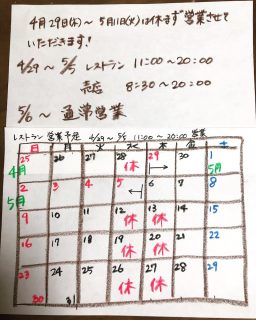 4月29日(木)～ 5月11日(火)は休まず営業させて
いただきます!
4/29 ～ 5/5 レストラン 11:00～20:00
売店 8:30～20:00
5/6～ 通常営業
レストラン 営業予定 4/29～5/5 11:00～20:00 営業
日 月 火 水 木 金 土
25 26 27 28 29 30 1
4月 休 5月
2 3 4 5 6 7 8
5月
9 10 11 12 13 14 15
休 休
16 17 18 19 20 21 22
休 休
23 24 25 26 27 28 29
休 休
30 31